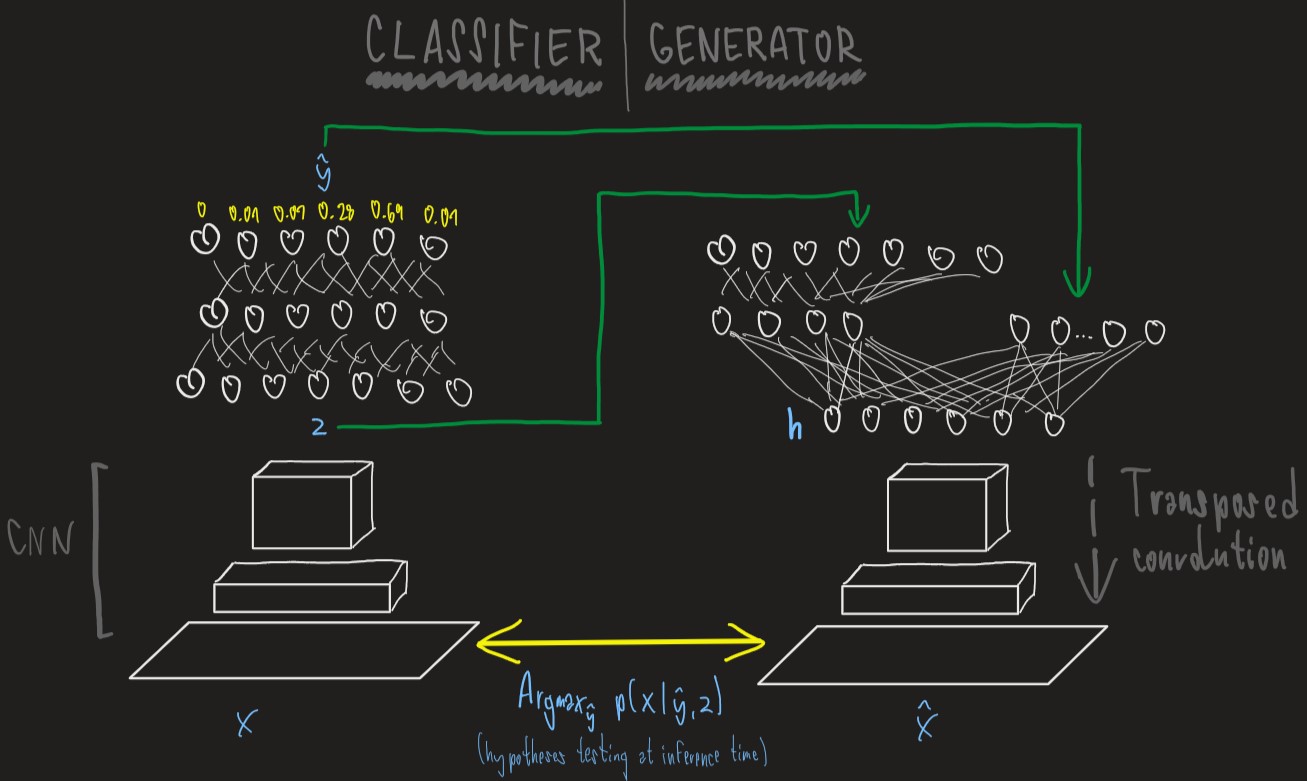 CLASSIFIER | GENERATOR
ŷ
0 0.01 0.01 0.28 0.69 0.01
z
h
CNN
Transposed
convolution
Argmax_ŷ p(x|ŷ,z)
(hypotheses testing at inference time)
x
x̂